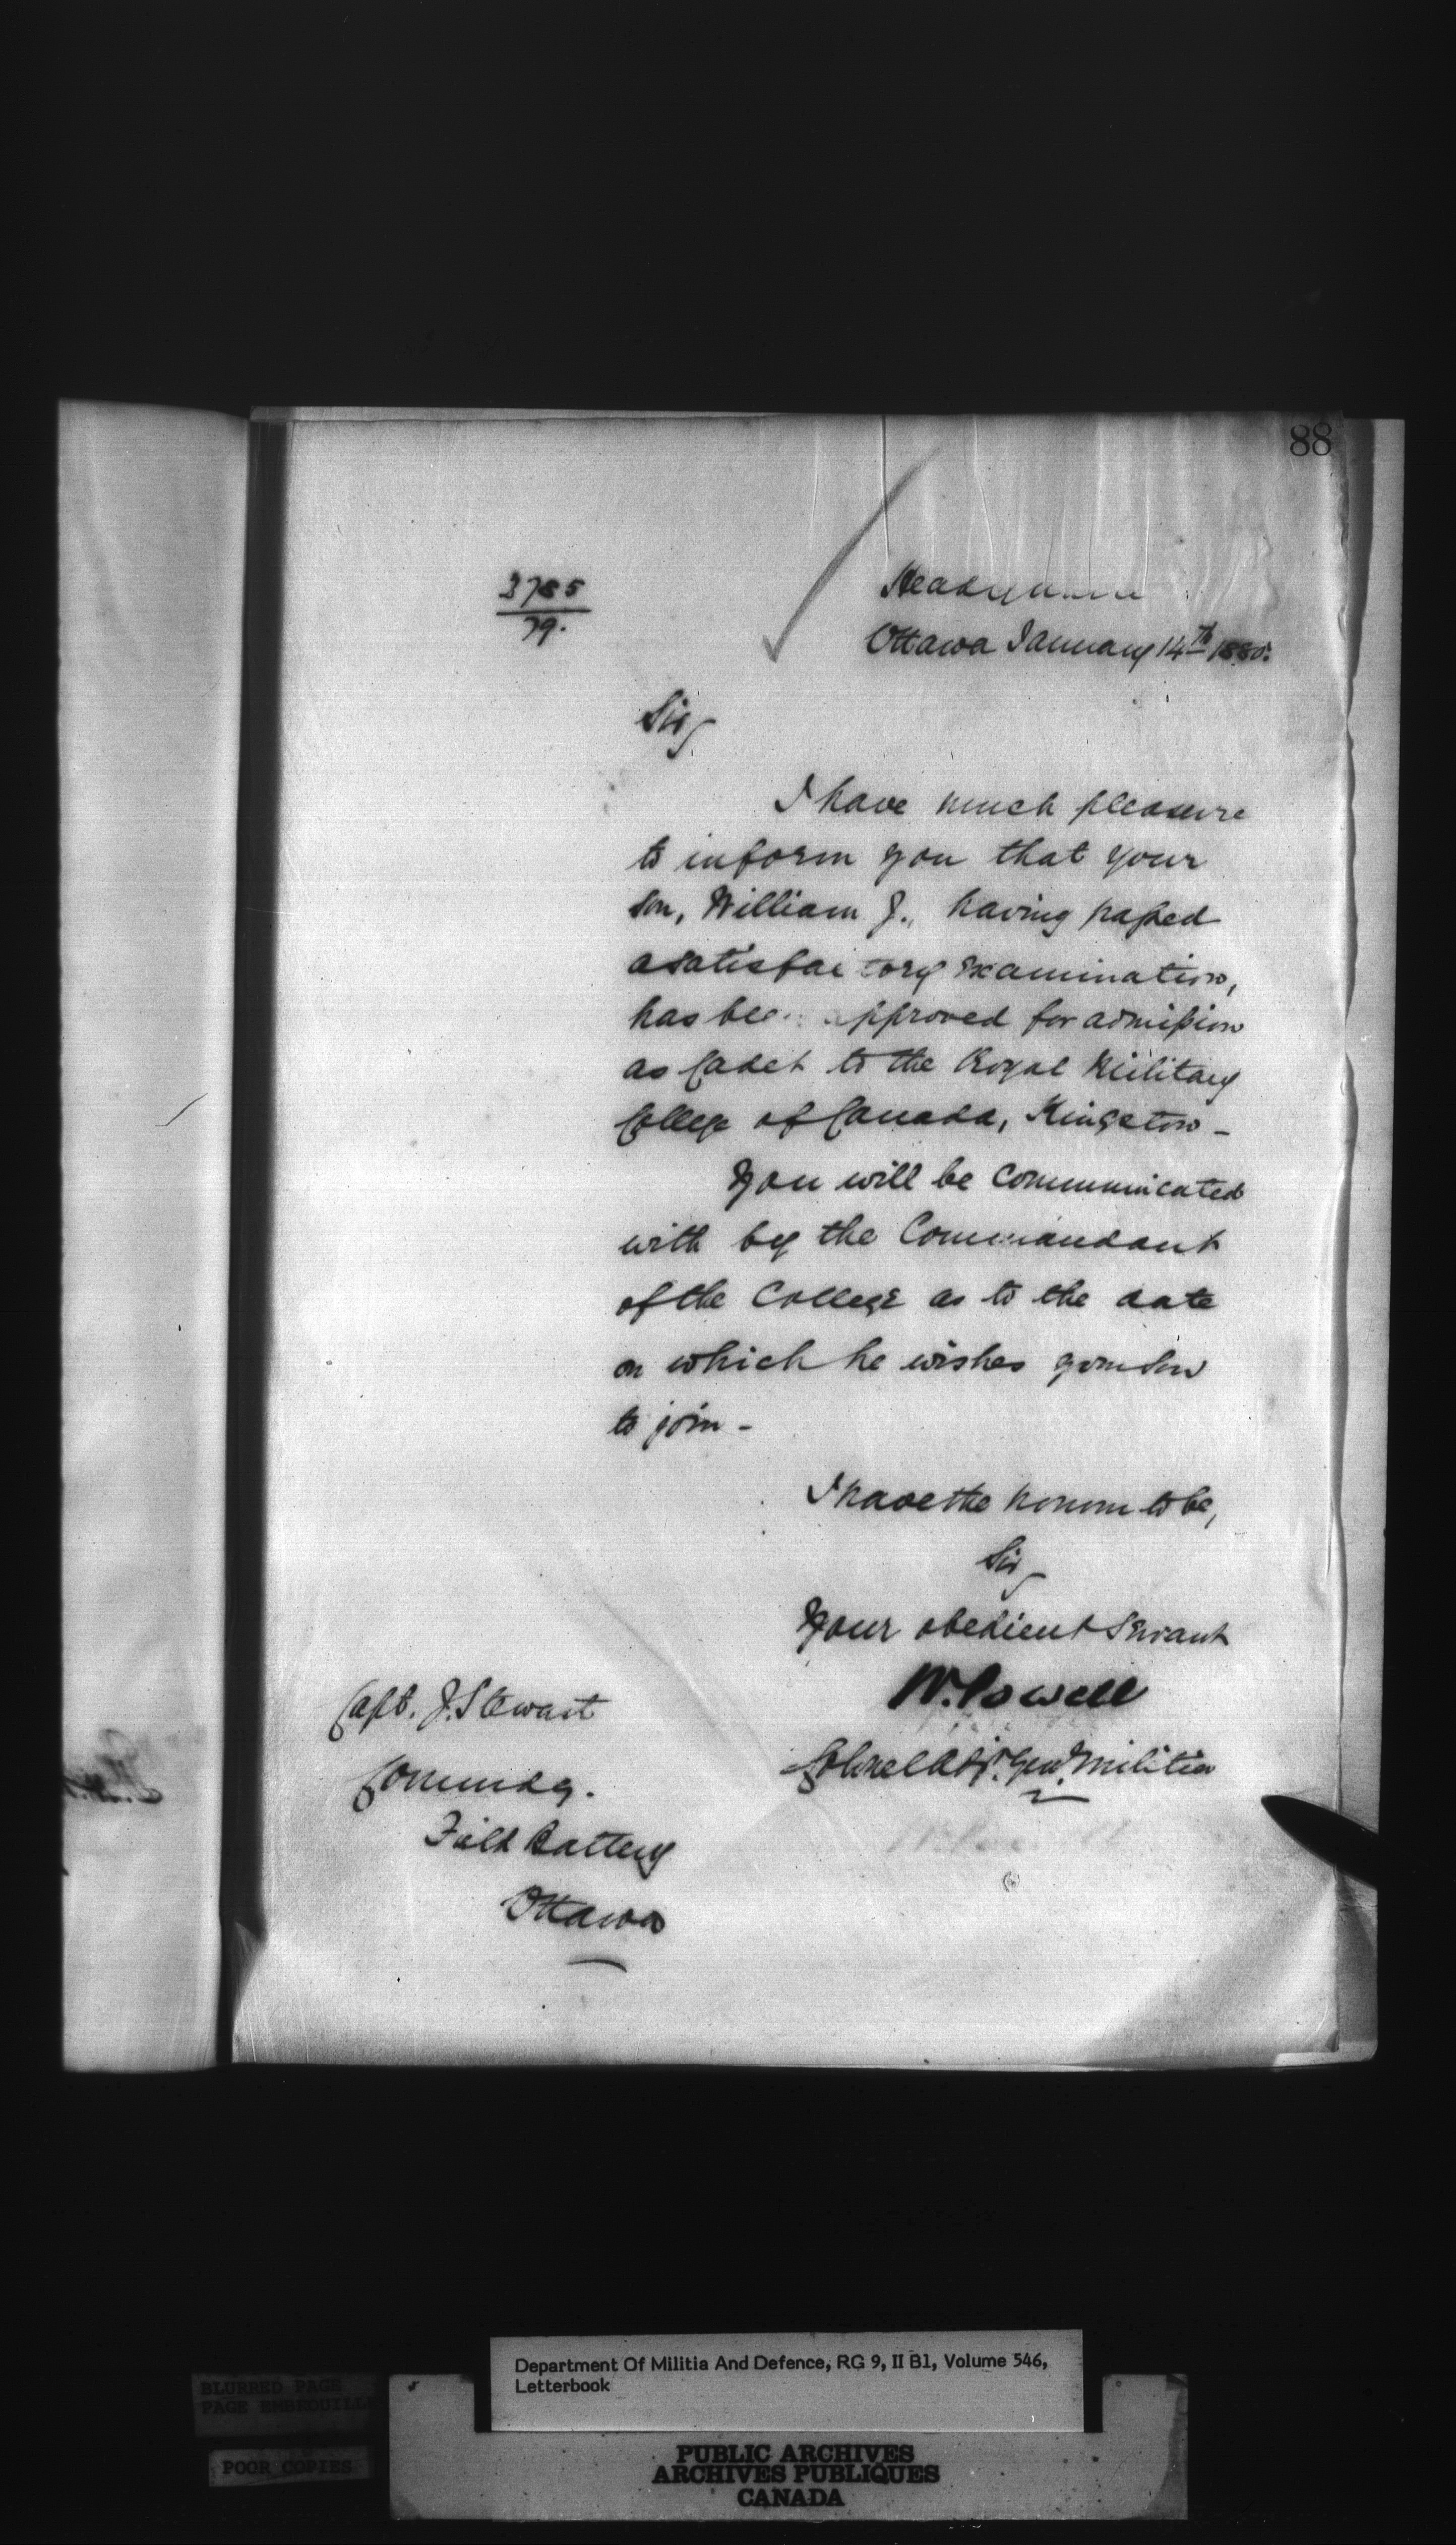 88
3785
79.
Ottawa January 14th 1880.
Sir,
I have much pleasure
to inform you that your
son, William J., having passed
a satisfactory examination,
has been approved for admission
as Cadet to the Royal Military
College of Canada, Kingston -
You will be communicated
with by the Commandant
of the College as to the date
on which he wishes your son
to join -
I have the honour to be,
Sir,
Your obedient Servant
W. Powell
Colonel Adjt. Genl. Militia
Capt. J. Stewart
Commdg.
Field Battery
Ottawa
Department Of Militia And Defence, RG 9, II B1, Volume 546,
Letterbook
BLURRED PAGE
PAGE EMBROUILL
POOR COPIES
PUBLIC ARCHIVES
ARCHIVES PUBLIQUES
CANADA